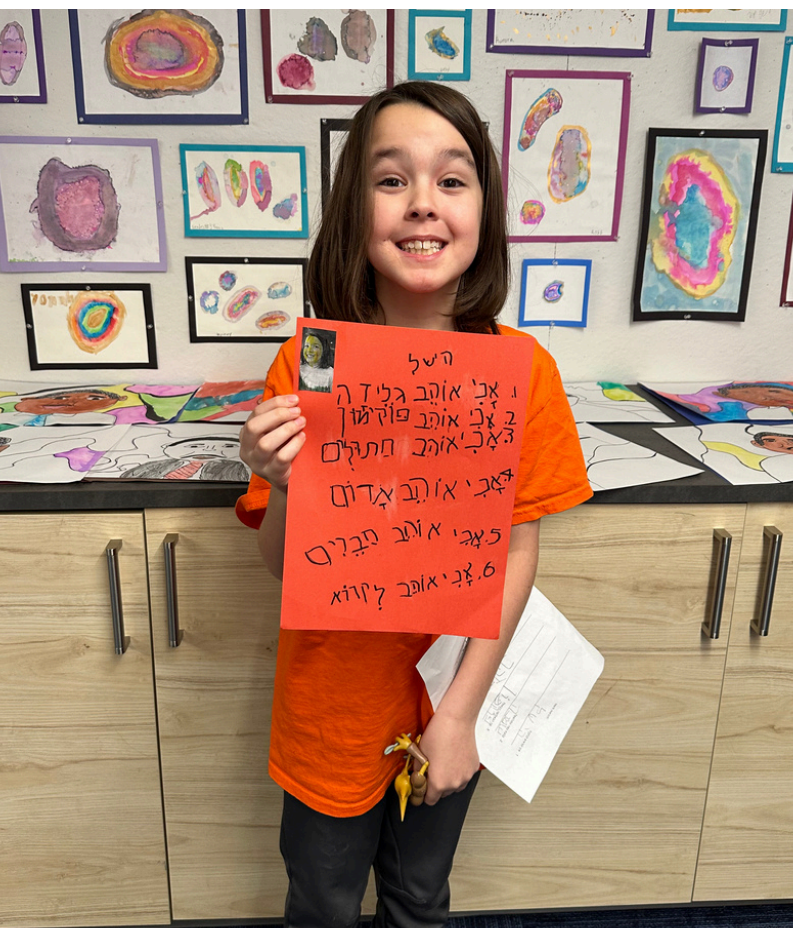 הישל
1. אֲנִי אוֹהֵב גלִידה
2. אֲנִי אוֹהֵב פּוֹקימוֹן
3. אֲנִי אוֹהֵב חתוּלִים
4. אֲנִי אוֹהֵב אָדוֹם
5. אֲנִי אוֹהֵב חֲבֵרִים
6. אֲנִי אוֹהֵב לִקרוֹא